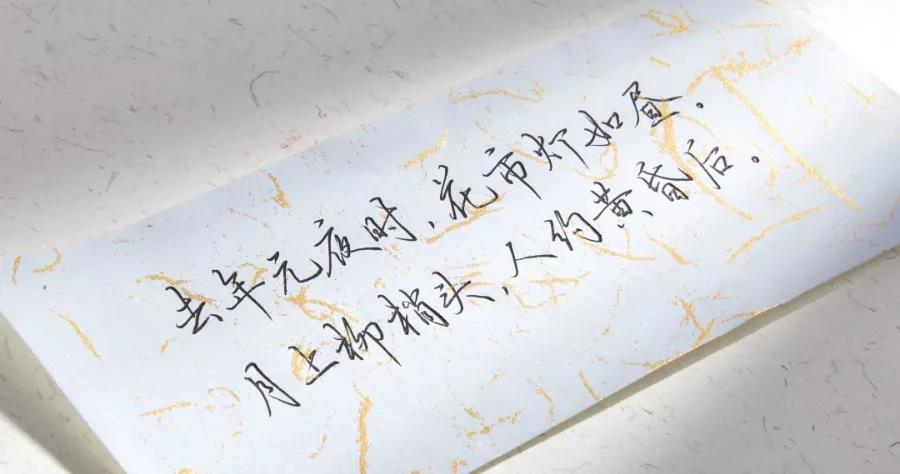 去年元夜时，花市灯如昼。
月上柳梢头，人约黄昏后。